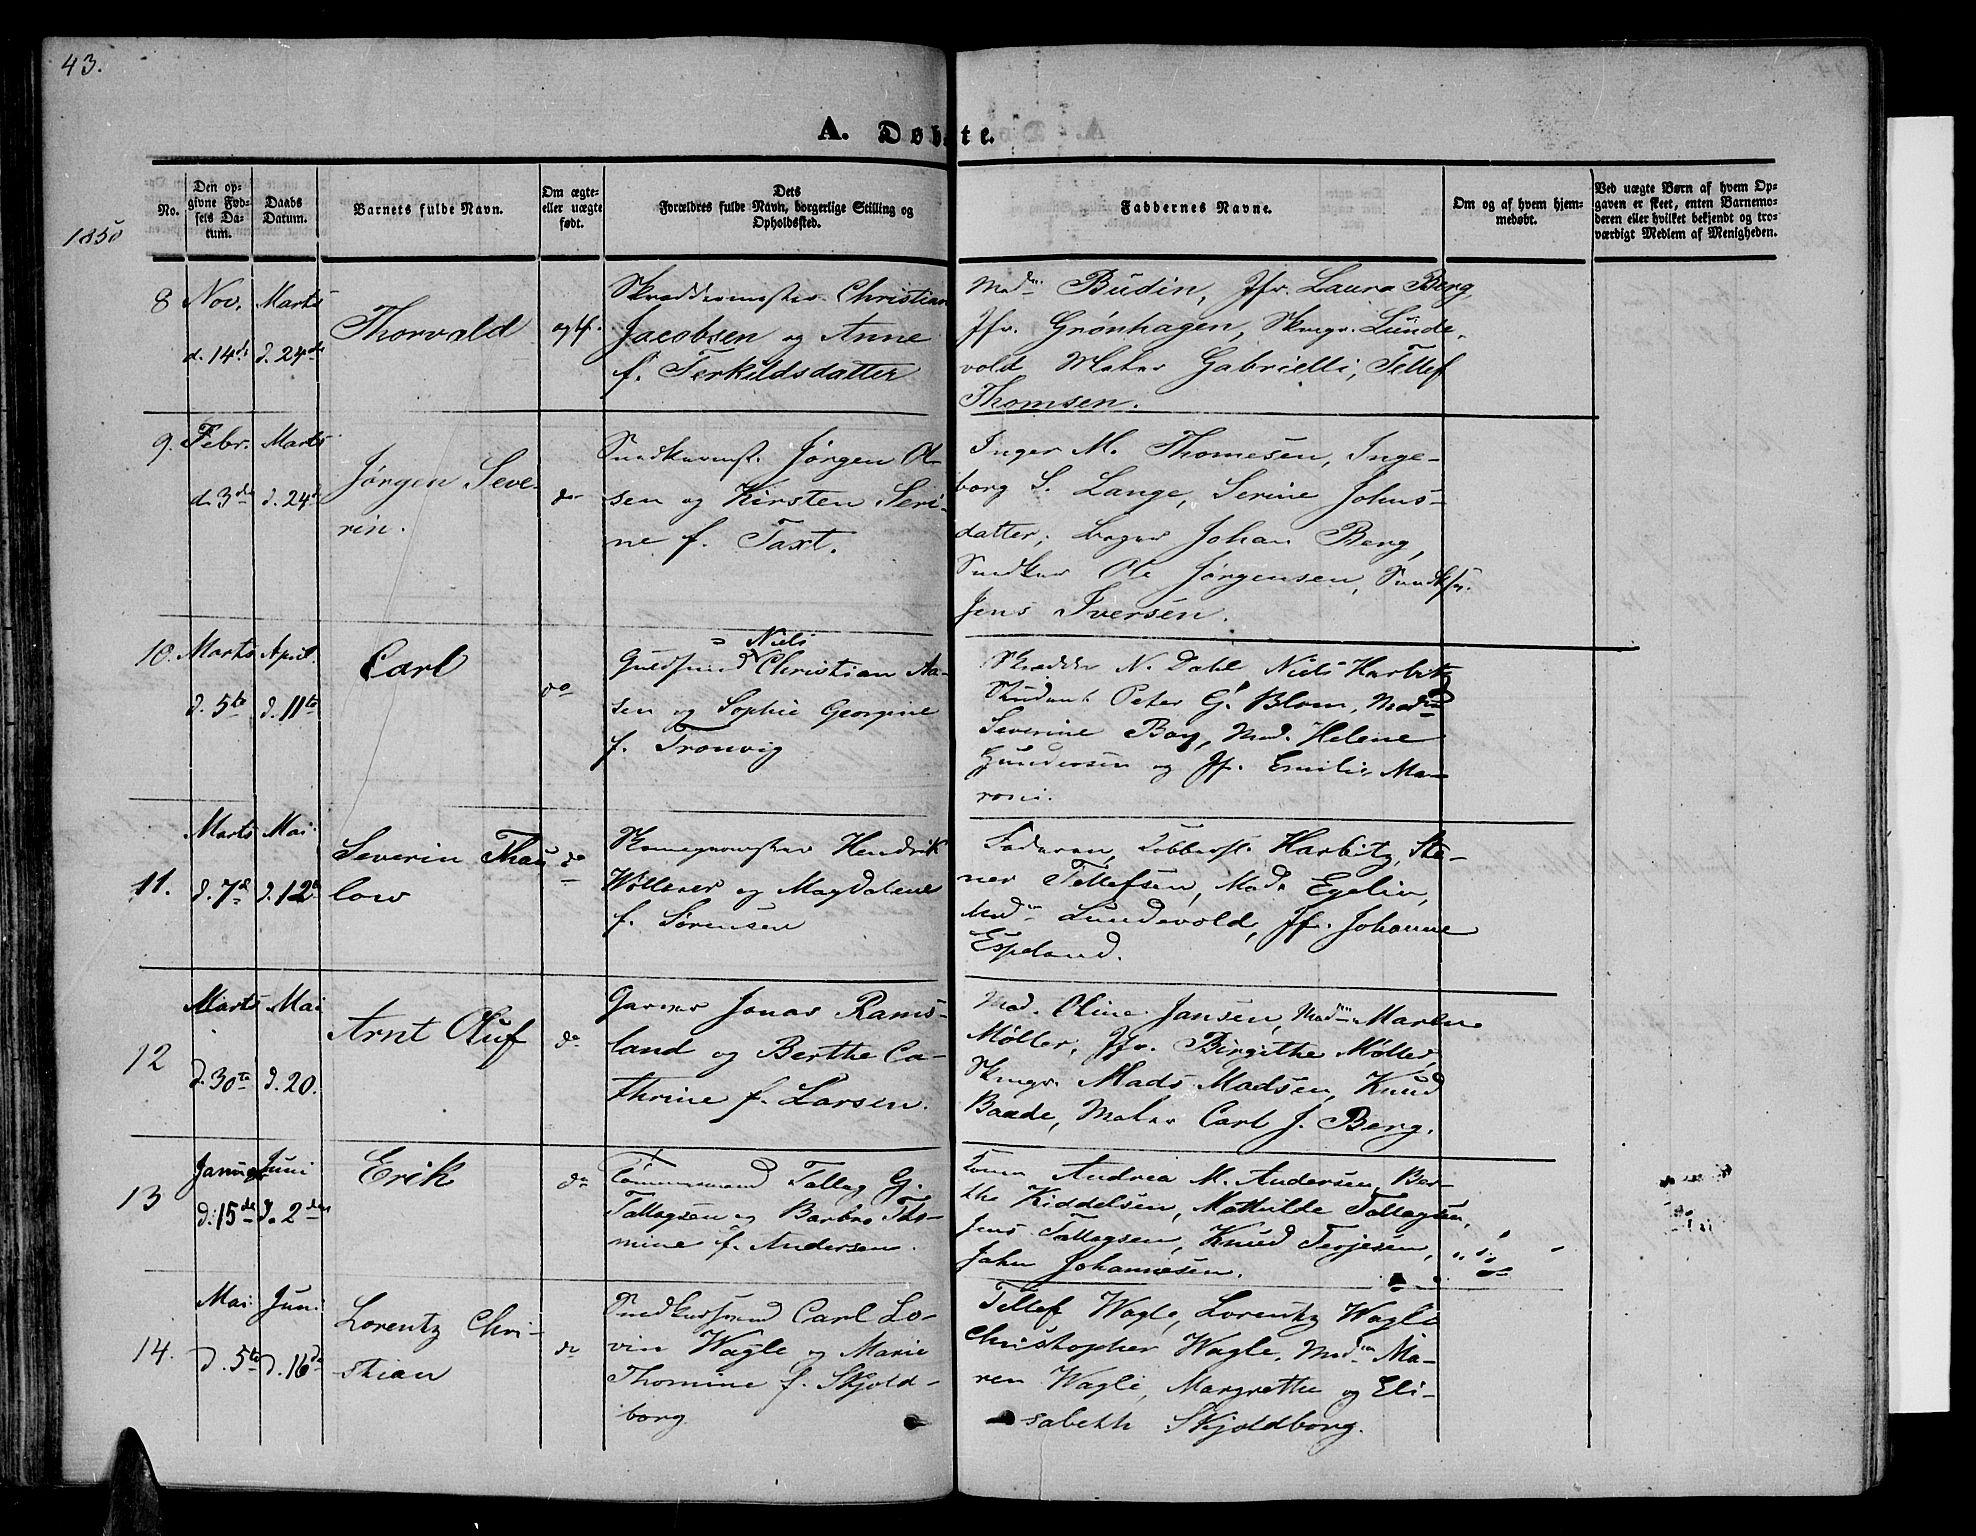 43.
A. Døbte.
No.
Den op-
givne Fød-
sels Da-
tum.
Daabs
Datum.
Barnets fulde Navn.
Om ægte-
eller uægte
født.
Dets
Forældres fulde Navn, borgerlige Stilling og
Opholdssted.
Faddernes Navne.
Om og af hvem hjem-
medøbt.
Ved uægte Børn af hvem Op-
gaven er skeet, enten Barnemo-
deren eller hvilket bekjendt og tro-
værdigt Medlem af Menigheden.
1850
8 Nov. d. 14de Marts d. 24de
Thorvald
ægtf.
Skræddermester Christian
Jacobsen og Anne
f. Terkildsdatter
Madm Budin, Jfr. Laura Berg
Jfr. Grønhagen, Skmgr. Lunde-
vold Maler Gabrielli, Tellef
Thomsen.
9. Febr. d. 3die Marts d. 24de
Jørgen Seve-
rin.
do
Snedkermst. Jørgen Ol-
sen og Kirsten Seri-
ne f. Taxt.
Inger M. Thomesen, Inge-
borg S. Lange, Serine Johns-
datter, Bager Johan Berg,
Snedker Ole Jørgensen, Snedksv.
Jens Iversen.
10. Marts d. 5te April d. 11te
Carl
do
Niels
Guldsmed Christian Aa-
sen og Sophie Georgine
f. Tronvig
Skrædder N. Dahl, Niels Harbitz
Student Peter G. Blom, Madm
Severine Boy, Mad. Helene
Gundersen og Jf. Emilie Ma-
roni.
11. Marts d. 7de Mai d. 12te
Severin Thau-
low
do
Skomagermester Hendrik
Wøllner og Magdalene
f. Sørensen
Faderen, Kobberst. Harbitz, Ste-
ner Tellefsen, Mad. Egelin,
Madm Lundevold, Jf. Johanne
Espeland.
12 Marts d. 30te Mai d. 20.
Arnt Oluf
do
Garver Jonas Rams-
land og Berthe Ca-
thrine f. Larsen.
Mad. Oline Jansen, Madm Maren
Møller, Jfr. Birgithe Møller,
Skmgr. Mads Madsen, Knud
Baade, Maler Carl J. Berg.
13 Januar d. 15de Juni d. 2den
Erik
do
Tømmermand Tallag G.
Tallagsen og Barbro Tho-
mine f. Andersen.
Andrea M. Andersen, Ber-
the Kiddelsen, Mathilde Tallagsen,
Jens Tallagsen, Knud Terjesen,
John Johannesen.
14. Mai d. 5te Juni d. 16de
Lorentz Chri-
stian
do
Snedkersvend Carl Lo-
vin Wagle og Marie
Thomine f. Skjold-
borg
Tellef Wagle, Lorentz Wagle
Christopher Wagle, Madm Ma-
ren Wagle, Margrethe og Eli-
sabeth Skjoldborg.